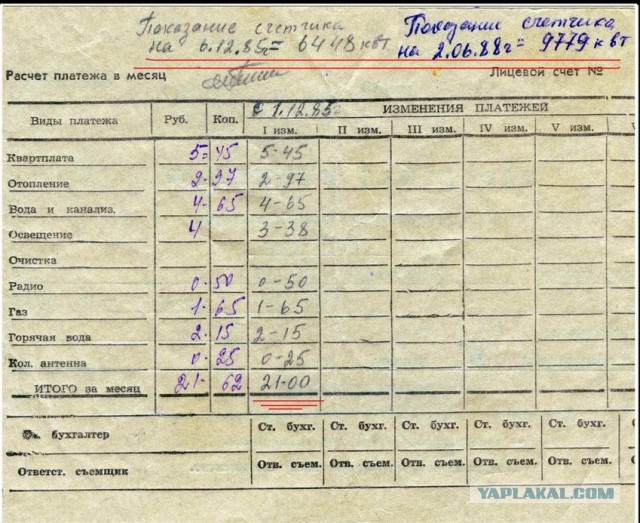 Показание счетчика Показания счетчика
на 6.12.85г = 6448 квт. на 2.06.88г = 9779 квт
Расчет платежа в месяц Лицевой счет №
Виды платежа Руб. Коп. с 1.12.85г ИЗМЕНЕНИЯ ПЛАТЕЖЕЙ
I изм. II изм. III изм. IV изм. V изм. V
Квартплата 5= 45 5-45
Отопление 2-97 2-97
Вода и канализ. 4-65 4-65
Освещение 4 3-38
Очистка
Радио 0-50 0-50
Газ 1-65 1-65
Горячая вода 2-15 2-15
Кол. антенна 0-25 0-25
ИТОГО за месяц 21- 62 21-00
бухгалтер Ст. бухг. Ст. бухг. Ст. бухг. Ст. бухг. Ст. бухг.
Ответст. съемщик Отв. съем. Отв. съем. Отв. съем. Отв. съем. Отв. съем.
YAPLAKAL.COM